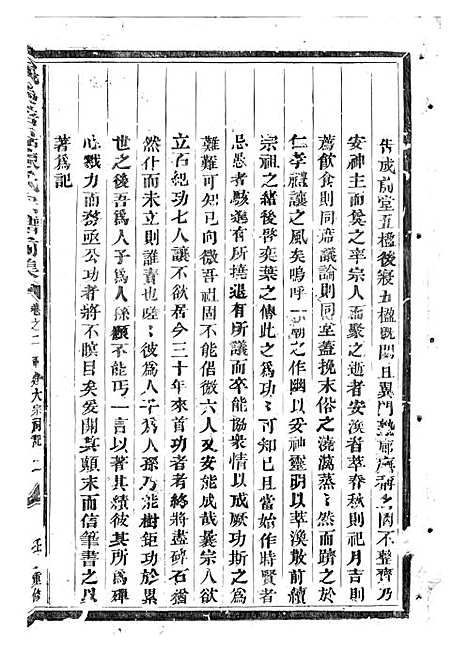 告成前堂五楹後寢五楹既閎且異門塾廊廡靡不整齊乃
安神主而奠之率宗人而聚之逝者安渙者萃春秋則祀月吉則
薦飲食則同席議論則同室蓋挽末俗之澆漓蒸然而躋之於
仁孝禮讓之風矣嗚呼一廟之作幽以妥神靈明以萃渙散前續
宗祖之緒後啓奕葉之傳此之為功亘古今當其始作時賢者
忌愚者駭有所撓退有所議而卒能協衆情以成厥功斯之
難難可知向微吾祖固不能倡微六人又安能成哉曩宗人欲
立石紀功七人讓不欲居今三十年來首功者者終將盡碑石猶
然仆而未立則誰責歟嗟嗟彼為人子為人孫乃能樹鉅功於累
世之後吾為人子為人孫顧不能丐一言以著其績彼其所為殫
心戮力而務亟公功者將不瞑目矣爰閱其顛末而信筆書之具
著為記
卷之二 大宗祠記 二 重修